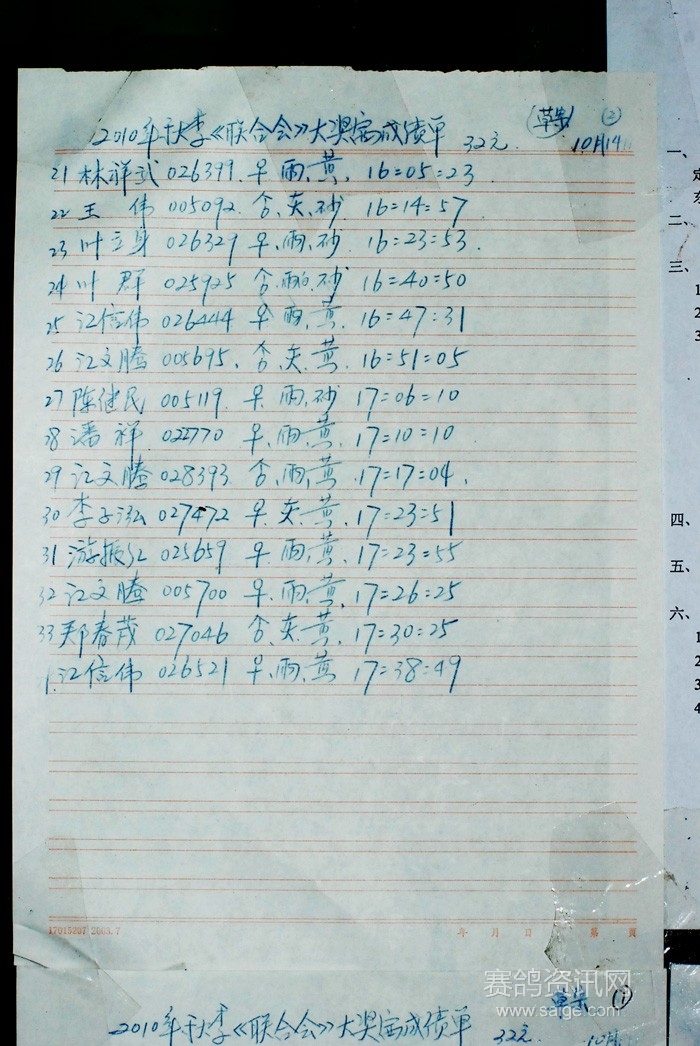 2010年秋季《联合会》大奖赛成绩单 32元 (2) 10月14日
21 林祥武 026399 早 雨、黄 16:05:23
22 王 伟 005092. 含、灰、砂 16:14:57
23 叶立身 026329 早、雨、砂 16:23:53.
24 叶 群 025925 含、雨、砂 16:40:50
25 江信伟 026444 早 雨、黄. 16:47:31
26 江文腾 005695. 含、灰、黄 16:51:05
27 陈健民 005119. 早、雨、砂 17:06:10
28 潘 祥 022770 早、雨、黄. 17:10:10
29 江文腾 028393. 含、雨、黄. 17:17:04.
30 李子泓 027472 早、灰、黄. 17:23:51
31 游振江 025659 早、雨、黄. 17:23:55
32 江文腾 005700 早、雨、黄. 17:26:25
33 郑春茂 027046 含、灰、黄. 17:30:25
江信伟 026521 早、雨、黄 17:38:49
17015297 2003.7 年 月 日 第 页
赛鸽资讯网
www.saige.com
(1)
2010年秋季《联合会》大奖赛成绩单 32元 10月
一、
定
东
二、
三、
1
2
3
四、
五、
六、
1
2
3
4